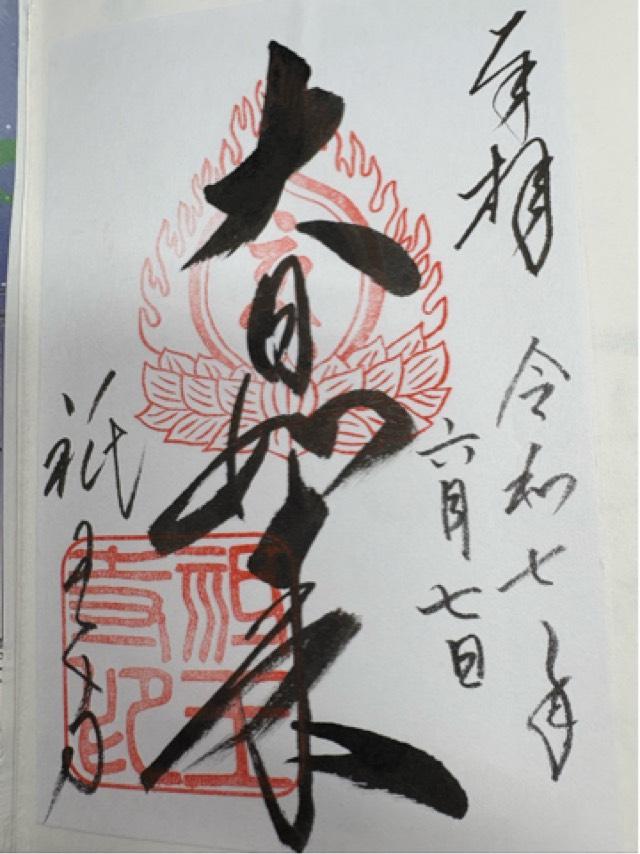 奉拝
令和七年
六月七日
大日如来
祇王寺
祇王寺印